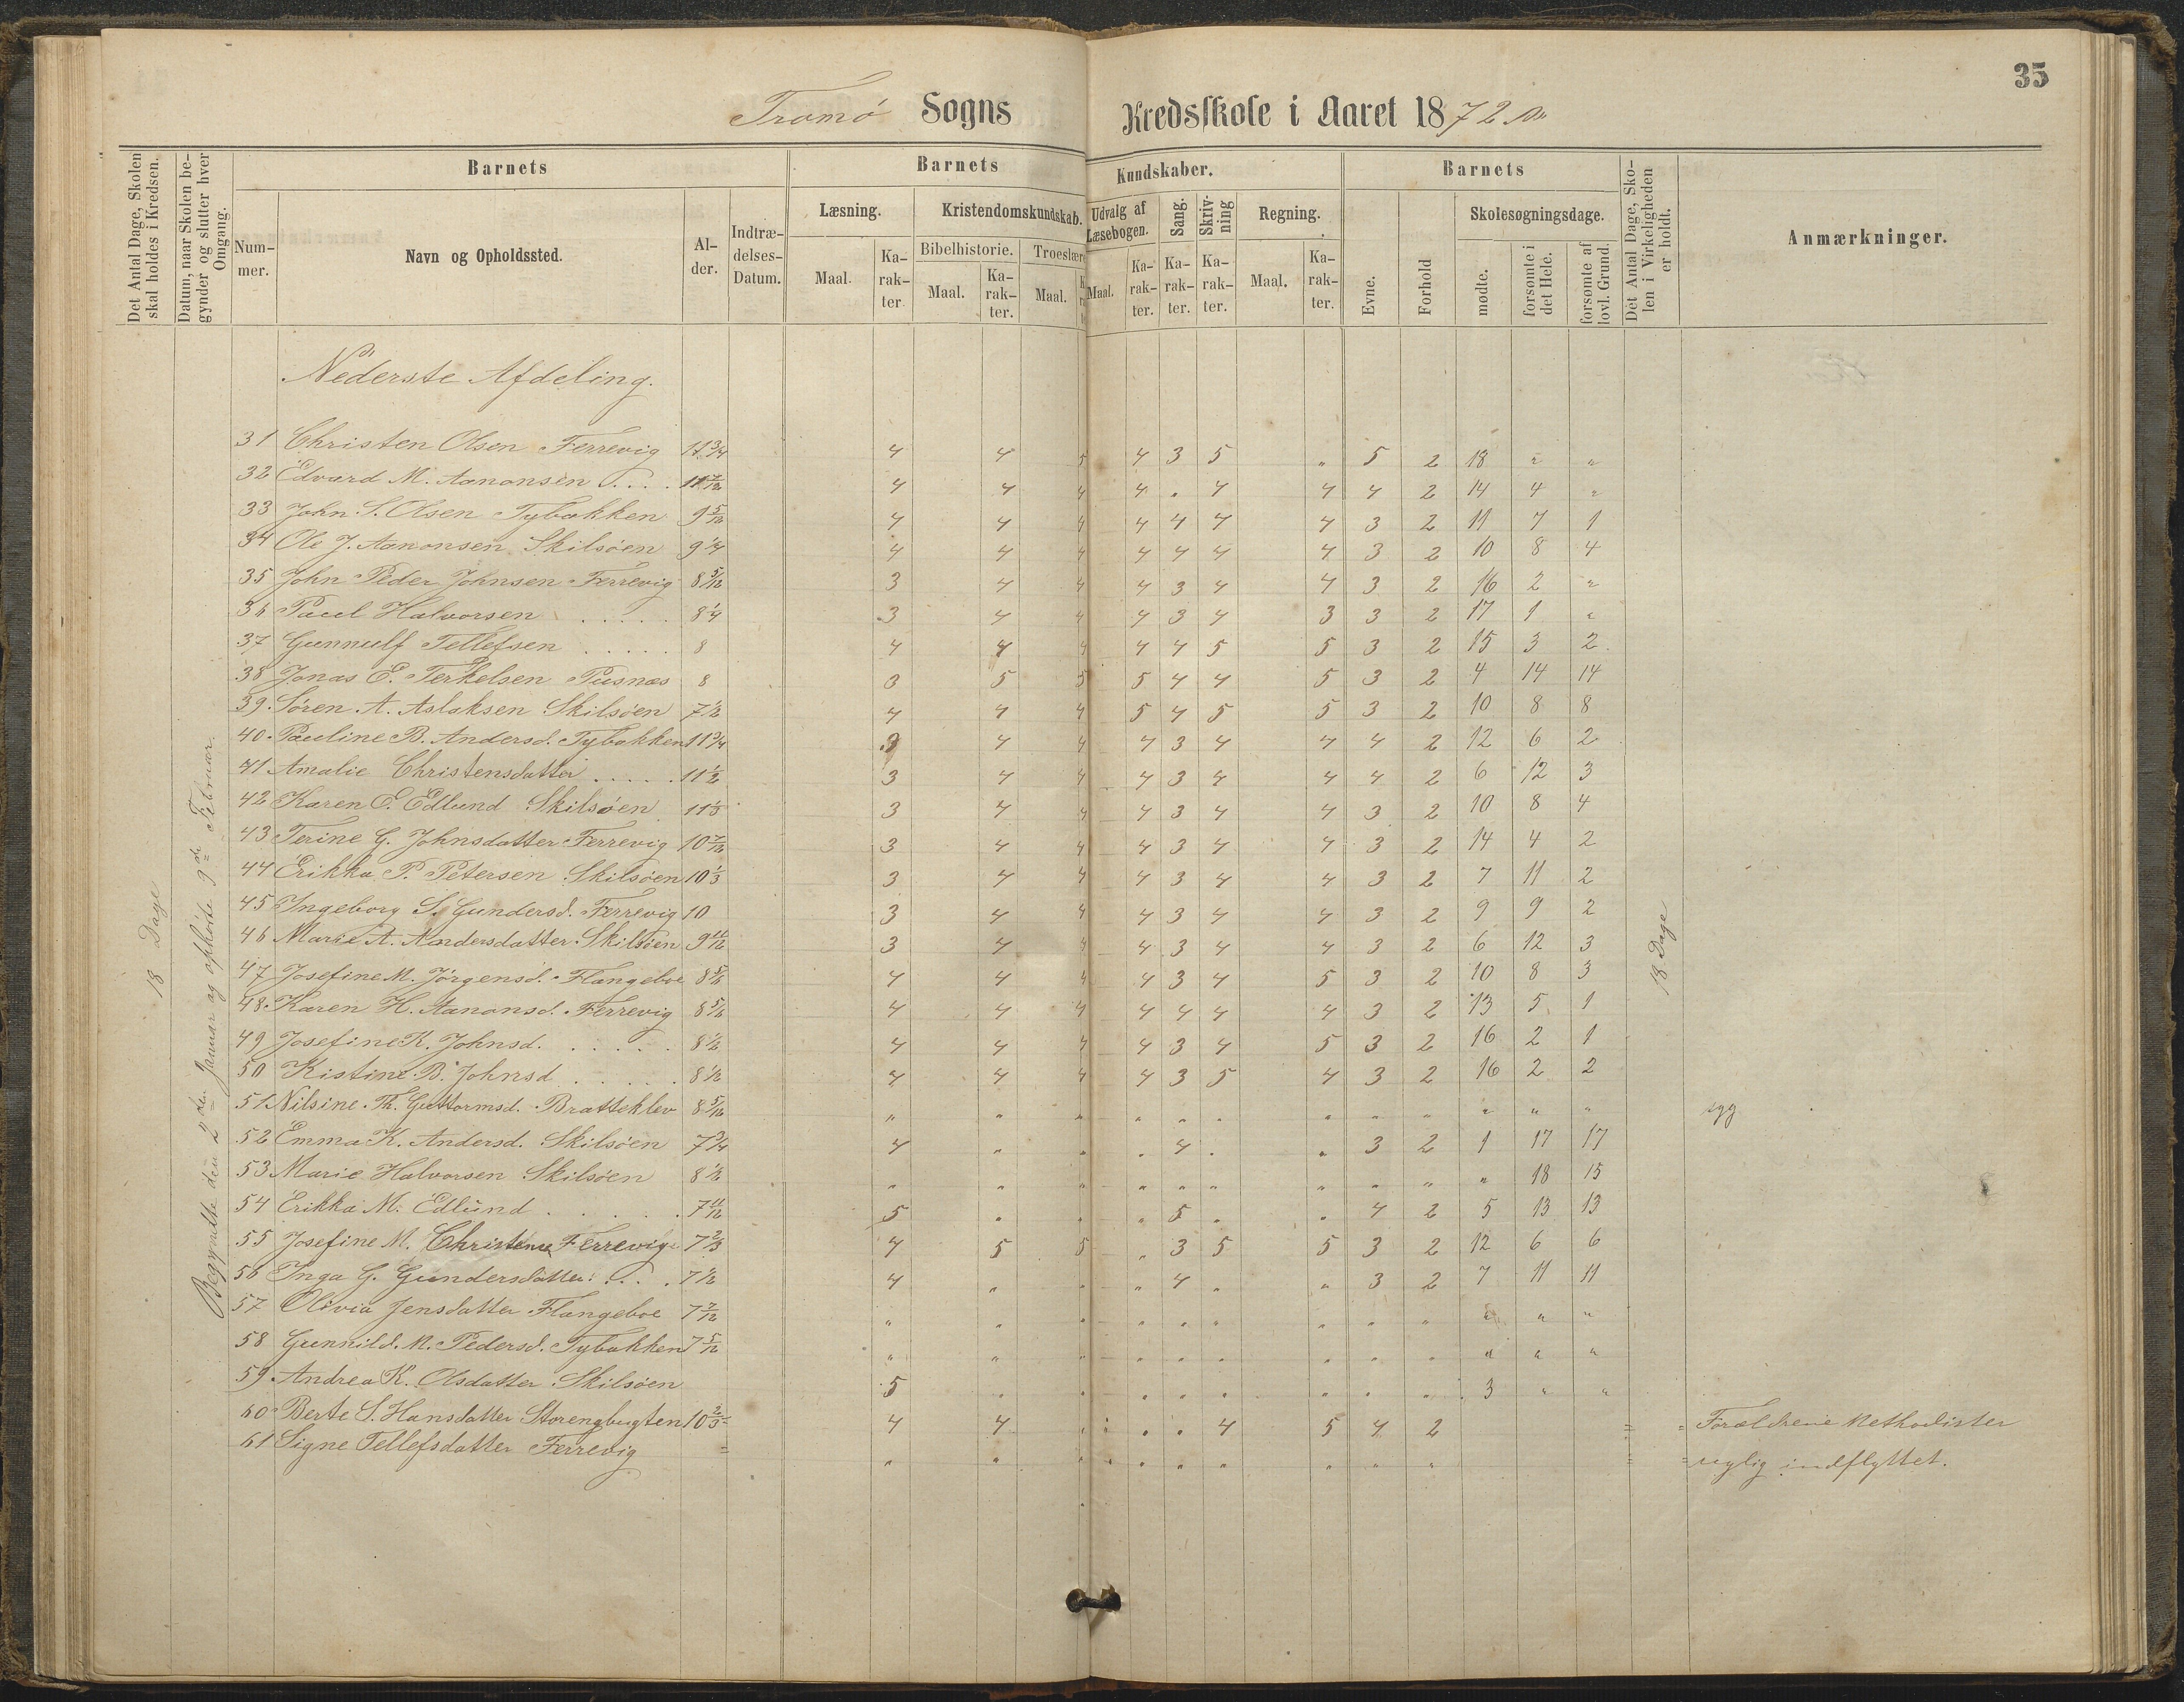 35
Tromø Sogns Kredsskole i Aaret 1872
Det Antal Dage, Skolen skal holdes i Kredsen.
Datum, naar Skolen begynder og slutter hver Omgang.
Barnets
Barnets
Kundskaber.
Barnets
Det Antal Dage, Skolen i Virkeligheden er holdt.
Anmærkninger.
Nummer. Navn og Opholdssted. Alder. Indtrædelses-Datum.
Læsning. Kristendomskundskab. Udvalg af Læsebogen. Sang. Skrivning Regning. Evne. Forhold Skolesøgningsdage.
Bibelhistorie. Troeslær
Maal. Karakter. Maal. Karakter. Maal. Maal. Karakter. Karakter. Karakter. Maal. Karakter. mødte. forsømte i det Hele. forsømte af lovl. Grund.
18 Dage
Begyndte den 2den Januar og ophørte 9de Februar.
18 Dage
Nederste Afdeling.
31 Christen Olsen Ferrevig 11 3/4 4 4 5 4 3 5 " 5 2 18 " "
32 Edvard M. Aanonsen . . . . 11 7/12 4 4 4 4 . 4 4 4 2 14 4 "
33 John S. Olsen Tybakken 9 5/12 4 4 4 4 4 4 4 3 2 11 7 1
34 Ole J. Aanonsen Skilsøen 9 1/4 4 4 4 4 4 4 4 3 2 10 8 4
35 John Peder Johnsen Ferrevig 8 5/12 3 4 4 4 3 4 4 3 2 16 2 "
36 Paul Halvorsen . . . . . 8 1/4 3 4 4 4 3 4 3 3 2 17 1 "
37 Gunnulf Tellefsen . . . . . 8 4 4 4 4 4 5 5 3 2 15 3 2
38 Jonas E. Terkelsen Pusnæs 8 3 5 5 5 4 4 5 3 2 4 14 14
39. Søren A. Aslaksen Skilsøen 7 1/2 4 4 4 5 4 5 5 3 2 10 8 8
40. Pauline B. Andersd. Tybakken 11 3/4 3 4 4 4 3 4 4 4 2 12 6 2
41 Amalie Christensdatter . . . . . 11 1/2 3 4 4 4 3 4 4 4 2 6 12 3
42 Karen E. Edlund Skilsøen 11 1/3 3 4 4 4 3 4 4 3 2 10 8 4
43 Terine G. Johnsdatter Ferrevig 10 7/12 3 4 4 4 3 4 4 3 2 14 4 2
44 Erikka P. Petersen Skilsøen 10 1/3 3 4 4 4 3 4 4 3 2 7 11 2
45 Ingeborg S. Gundersd. Ferrevig 10 3 4 4 4 3 4 4 3 2 9 9 2
46 Marie A. Andersdatter Skilsøen 9 11/12 3 4 4 4 3 4 4 3 2 6 12 3
47 Josefine M. Jørgensd. Flangeboe 8 5/6 4 4 4 4 3 4 5 3 2 10 8 3
48. Karen H. Aanonsd. Ferrevig 8 5/6 4 4 4 4 4 4 4 3 2 13 5 1
49 Josefine K. Johnsd. . . . . . 8 1/2 4 4 4 4 3 4 5 3 2 16 2 1
50 Kistine B. Johnsd . . . . . 8 1/2 4 4 4 4 3 5 4 3 2 16 2 2
51 Nilsine Th. Guttormsd. Bratteklev 8 5/12 " " " " " " " " " " " " syg
52 Emma K. Andersd. Skilsøen 7 3/4 4 " " . 4 . . 3 2 1 17 17
53 Marie Halvorsen Skilsøen 8 1/2 " " " " " " " " " " 18 15
54 Erikka M. Edlund . . . . . 7 11/12 5 . . . 5 . . 4 2 5 13 13
55 Josefine M. Christense Ferrevig 7 2/3 4 5 5 " 3 5 5 3 2 12 6 6
56 Inga G. Gundersdatter . . . 7 1/2 4 " " " 4 " " 3 2 7 11 11
57 Olivia Jensdatter Flangeboe 7 7/12 " " " " " " " " " " " "
58 Gunnild M. Pedersd. Tybakken 7 5/12 " " " " " " " " " " " "
59. Andrea K. Olsdatter Skilsøen 5 " " " " " " " " 3 " "
60 Berte S. Hansdatter Storengbugten 10 2/3 4 4 . . . 4 5 4 2 = = Forældrene Methodister
61 Signe Tellefsdatter Ferrevig = " " " " " " " " " = = nylig indflyttet.